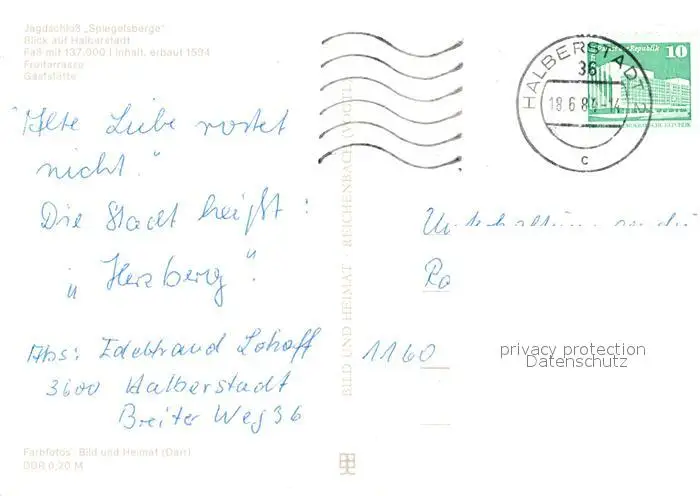 Jagdschloß „Spiegelsberge"
Blick auf Halberstadt
Faß mit 137.000 l Inhalt, erbaut 1594
Freiterrasse
Gaststätte
"Alte Liebe rostet
nicht."
Die Stadt heißt:
„Herzberg".
Abs: Edeltraud Lohoff
3600 Halberstadt
Breiter Weg 36
Farbfotos: Bild und Heimat (Darr)
DDR 0,20 M
BILD UND HEIMAT · REICHENBACH (VOGTL)
HALBERSTADT 2
36
18.6.8 -14
c
Palast der Republik 10
1160
privacy protection
Datenschutz